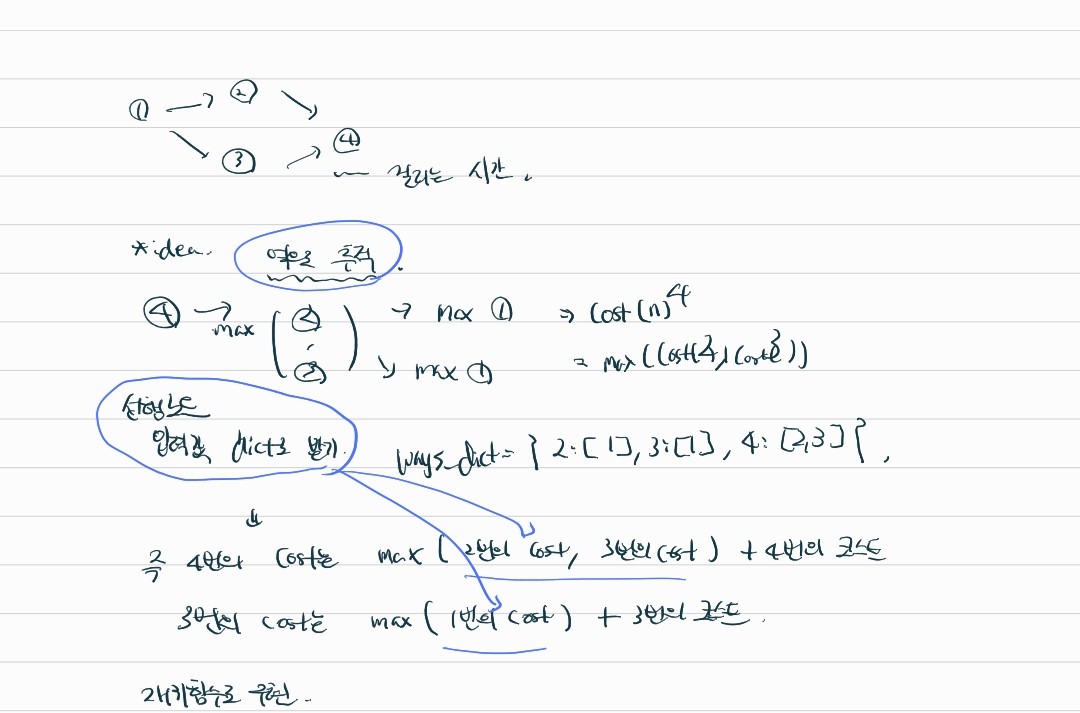 ① → ② ↘
↘ ③ ↗ ④
걸리는 시간.
*idea. 역으로 추적.
④ → max ( ②, ③ ) → max ① ⇒ Cost(n) 4
↘ max ① = max((cost(2), cost(3))
선행노드
입력값 dict로 받기.
ways_dict = { 2:[1], 3:[1], 4:[2,3] },
↓
즉 4번의 cost는 max (2번의 cost, 3번의 cost) + 4번의 코스트
3번의 cost는 max (1번의 cost) + 3번의 코스트.
재귀함수로 구현.